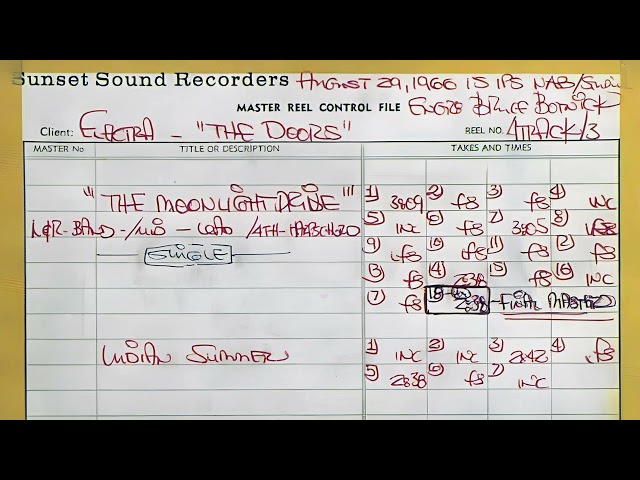 Sunset Sound Recorders AUGUST 29, 1966 15 IPS NAB/
MASTER REEL CONTROL FILE ENGRS BRUCE BOTNICK
Client: ELECTRA - "THE DOORS" REEL NO. 4TRACK/3
MASTER No TITLE OR DESCRIPTION TAKES AND TIMES
"THE MOONLIGHT DRIVE" 1) 3:09 2) FS 3) FS 4) INC
5) INC 6) FS 7) 3:05 8)
SINGLE 9) FS 10) FS 11) FS 12) FS
13) FS 14) 2:38 15) FS 16) INC
17) FS 18) 2:38 - FINAL MASTER
INDIAN SUMMER 1) INC 2) INC 3) 2:42 4) FS
5) 2:38 6) FS 7) INC